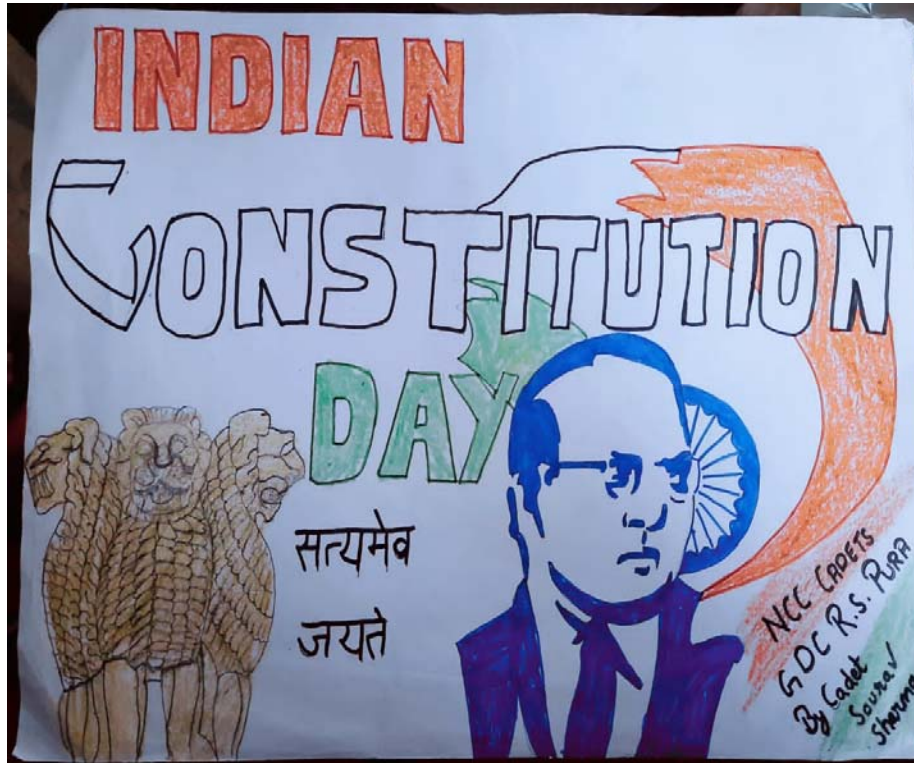 INDIAN
CONSTITUTION
DAY
सत्यमेव
जयते
NCC CADETS
GDC R.S. PURA
By Cadet
Sourav
Sharma